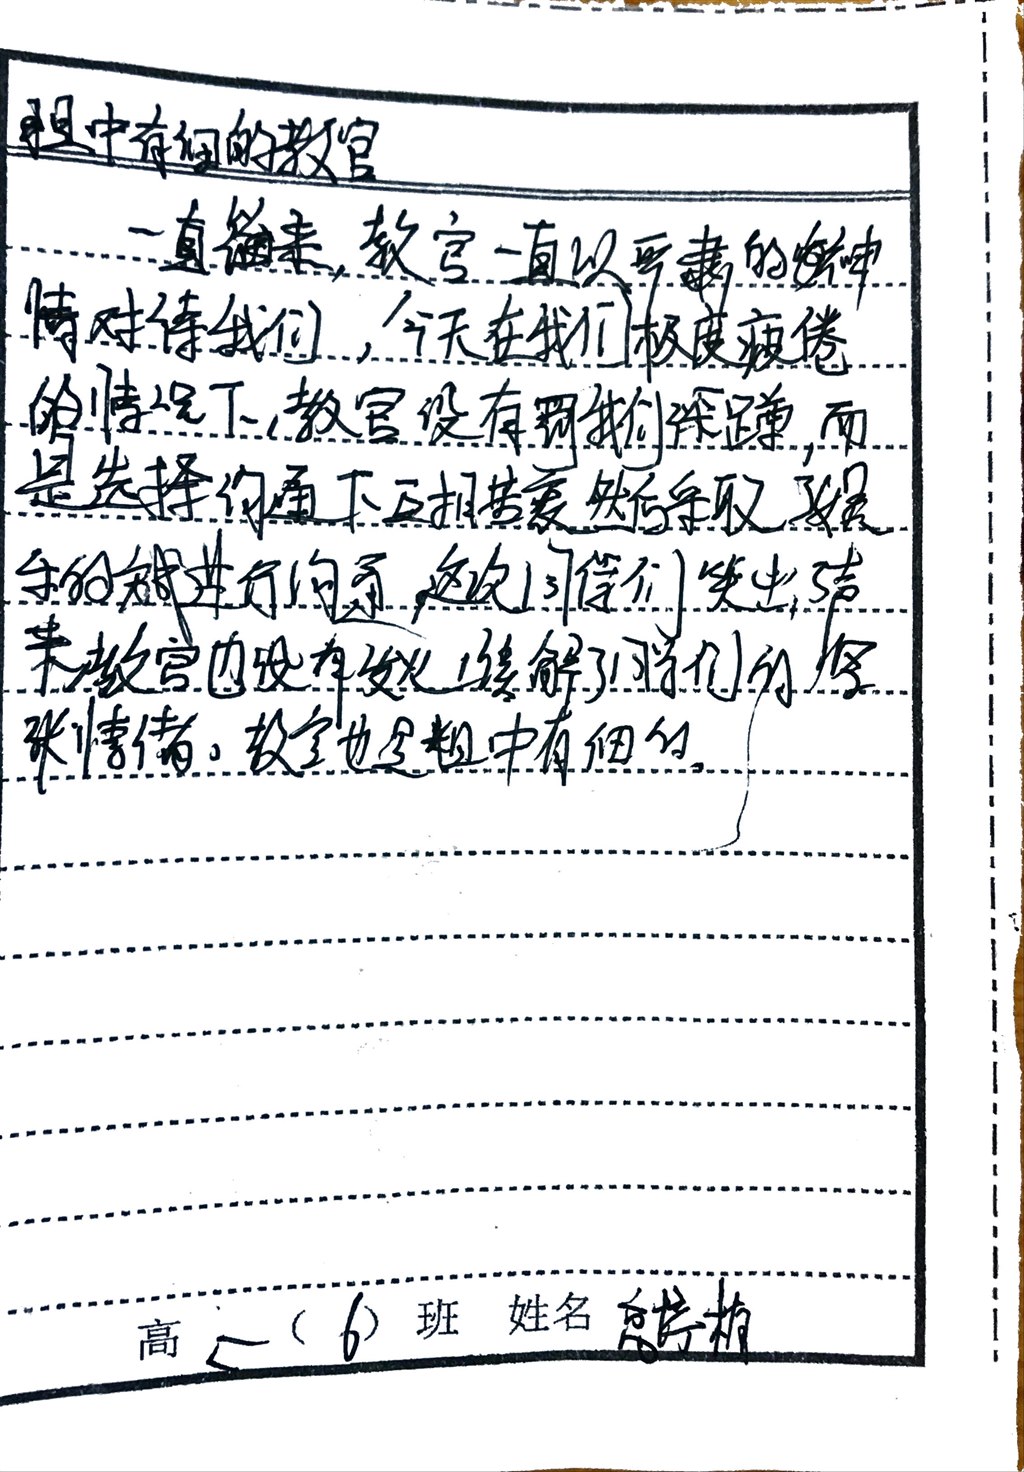 粗中有细的教官
一直以来,教官一直以严肃的神
情对待我们,今天在我们极度疲倦
的情况下,教官没有罚我们深蹲,而
是选择沟通下互相 然后采取
的 进行沟通,这次同学们 出,结
果教官也没有发火,缓解了同学们的紧
张情绪。教官也是粗中有细的。
高 一(6)班 姓名